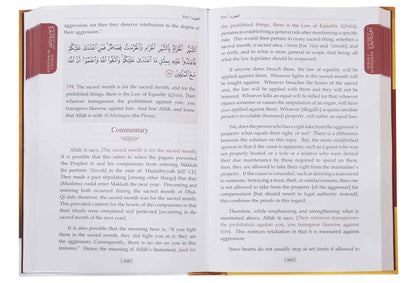 aggression, for then they deserve retribution to the degree of
their aggression.
الشَّهْرُ الْحَرَامُ بِالشَّهْرِ الْحَرَامِ وَالْحُرُمَاتُ قِصَاصٌ فَمَنِ اعْتَدَى عَلَيْكُمْ
فَاعْتَدُوا عَلَيْهِ بِمِثْلِ مَا اعْتَدَى عَلَيْكُمْ وَاتَّقُوا اللَّهَ وَاعْلَمُوا أَنَّ اللَّهَ
مَعَ الْمُتَّقِينَ
194. The sacred month is for the sacred month, and for the
prohibited things, there is the Law of Equality (Qisas). Then
whoever transgresses the prohibition against you, you
transgress likewise against him. And fear Allah, and know
that Allah is with Al-Muttaqin (the Pious).
Commentary
Allah is says, [The sacred month is for the sacred month].
It is possible that this refers to when the pagans prevented
the Prophet and his companions from entering Makkah
[to perform 'Umrah] in the year of
They made a pact stipulating [among other things] that they
(Muslims) could enter Makkah the next year. Preventing and
entering both occurred during the sacred month of Dhul-
Qi'dah; therefore, the sacred month was for the sacred month.
This provided comfort for the hearts of the companions in that
their rituals were completed and perfected [occurring in the
sacred month of the next year].
It is also possible that the meaning here is, "If you fight
them in the sacred month, they did fight you in it; they are
the aggressors. Consequently, there is no sin on you in this
instance." Hence, the meaning of Allah's Statement, [and for
268
the prohibited things, there is the Law of Equality (Qisas)],
pertains to establishing a general rule after mentioning a specific
rule. This would then pertain to every sacred thing, whether a
sacred month, a sacred area, , from [for Hajj and Umrah], and
so forth, and to what is more general in scope, that being, all
what the legislation has commanded its inviolability.
If anyone dares breach these, the law of equality will be
applied against them. Whoever fights in the sacred month will
be fought against. Whoever breaches the honor of the sacred
area, the due punishment will be applied against him; they
violated that which was sacred and they will not be
honored. Whoever kills an equal will be killed for that; whoever
injures someone or causes the amputation of an organ, will have
equal law applied to them. Whoever [illegally] acquires another
person's inviolable [honored] property, will suffer an equal loss.
Yet, does the person who has a right take from the aggressor's
property what equals their right, or not? There is a difference
between the scholars on this topic. But, the more established
opinion is that if the cause is apparent, such as a guest who was
not properly hosted, or a wife or a relative who were denied
their due maintenance by those required to spend on them,
then, they are allowed to take their right from the maintainer's
property. If the cause is concealed, such as denying a loan owed
to someone, betraying a trust, theft, or similar reasons, then one
is not allowed to take from the property [of the aggressor] for
compensation [but should resort to legal authority instead];
this combines the proofs in this regard.
Therefore, while emphasizing and strengthening what is
mentioned above, Allah is says, [Then whoever transgresses
the prohibition against you, you transgress likewise against
him]. This restricts retaliation in that it is measured against
aggression.
Since hearts do not usually stop at set limits if allowed to
269